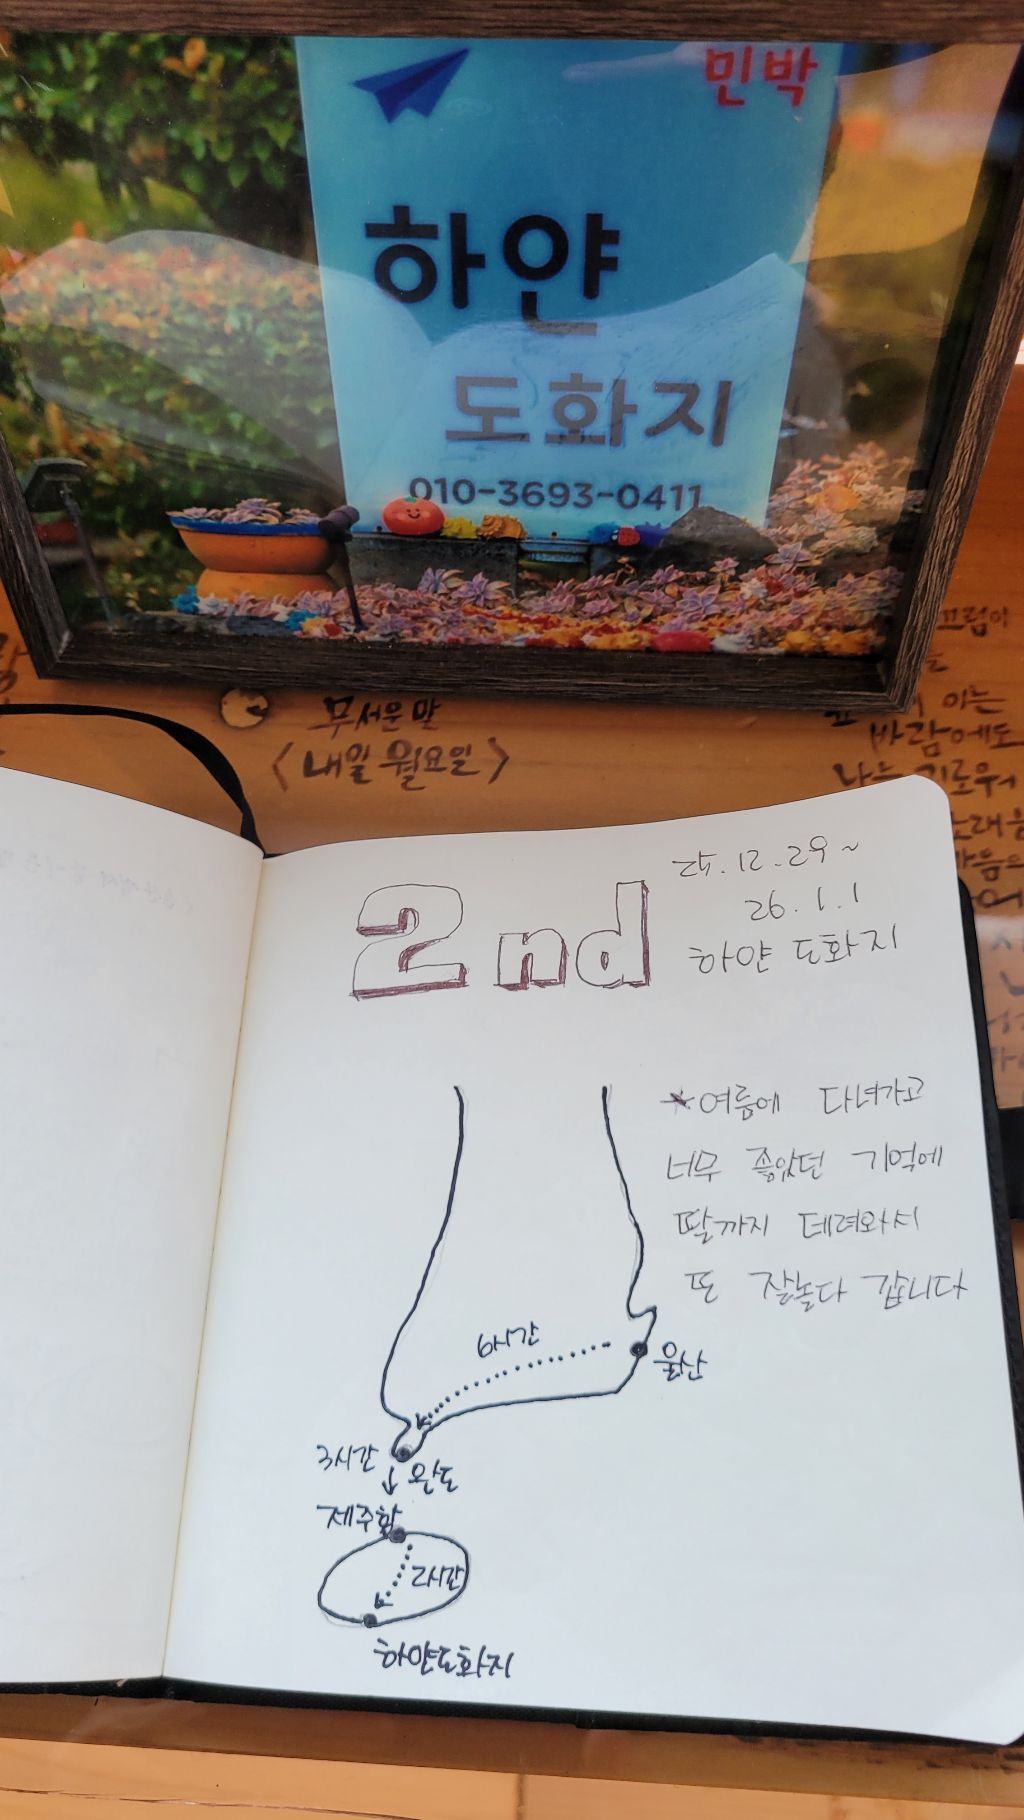 민박
하얀
도화지
010-3693-0411
무서운 말
<내일 월요일>
이는
바람에도
나는
2nd
25.12.29~
26.1.1
하얀 도화지
*여름에 다녀가고
너무 좋았던 기억에
딸까지 데려와서
또 잘놀다 갑니다
6시간
울산
3시간
완도
제주항
2시간
하얀도화지